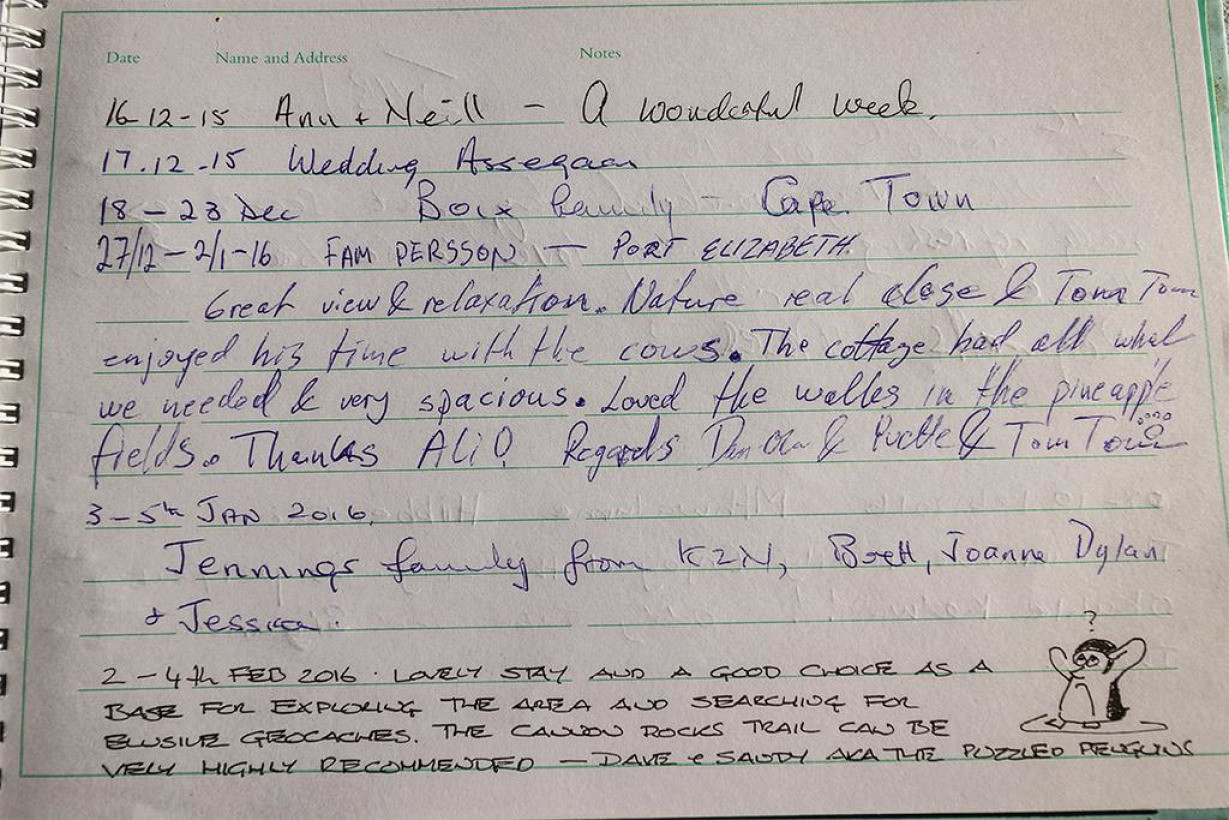 Date Name and Address Notes
16-12-15 Ann + Neill - A wonderful week.
17.12-15 Wedding Assegaai
18-23 Dec Family - Cape Town
27/12-2/1-16 FAM PERSSON - PORT ELIZABETH.
Great view & relaxation. Nature real close & Tom Tom
enjoyed his time with the cows. The cottage had all what
we needed & very spacious. Loved the walks in the pineapple
fields. Thanks Ali! Regards & & Tom Tom
3-5th JAN 2016.
Jennings family from KZN, Brett, Joanne Dylan
+ Jessica.
?
2-4th FEB 2016. LOVELY STAY AND A GOOD CHOICE AS A
BASE FOR EXPLORING THE AREA AND SEARCHING FOR
ELUSIVE GEOCACHES. THE CANNON ROCKS TRAIL CAN BE
VERY HIGHLY RECOMMENDED - DAVE & SANDY AKA THE PUZZLED PENGUINS